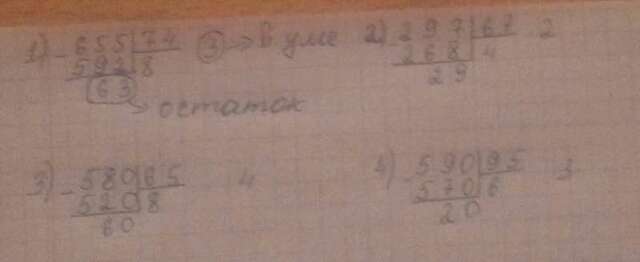 1) - 655 | 74 (3) → в уме
592 | 8
63 → остаток
2) - 297 | 67 2
268 | 4
29
3) - 580 | 65 4
520 | 8
60
4) - 590 | 95 3
570 | 6
20